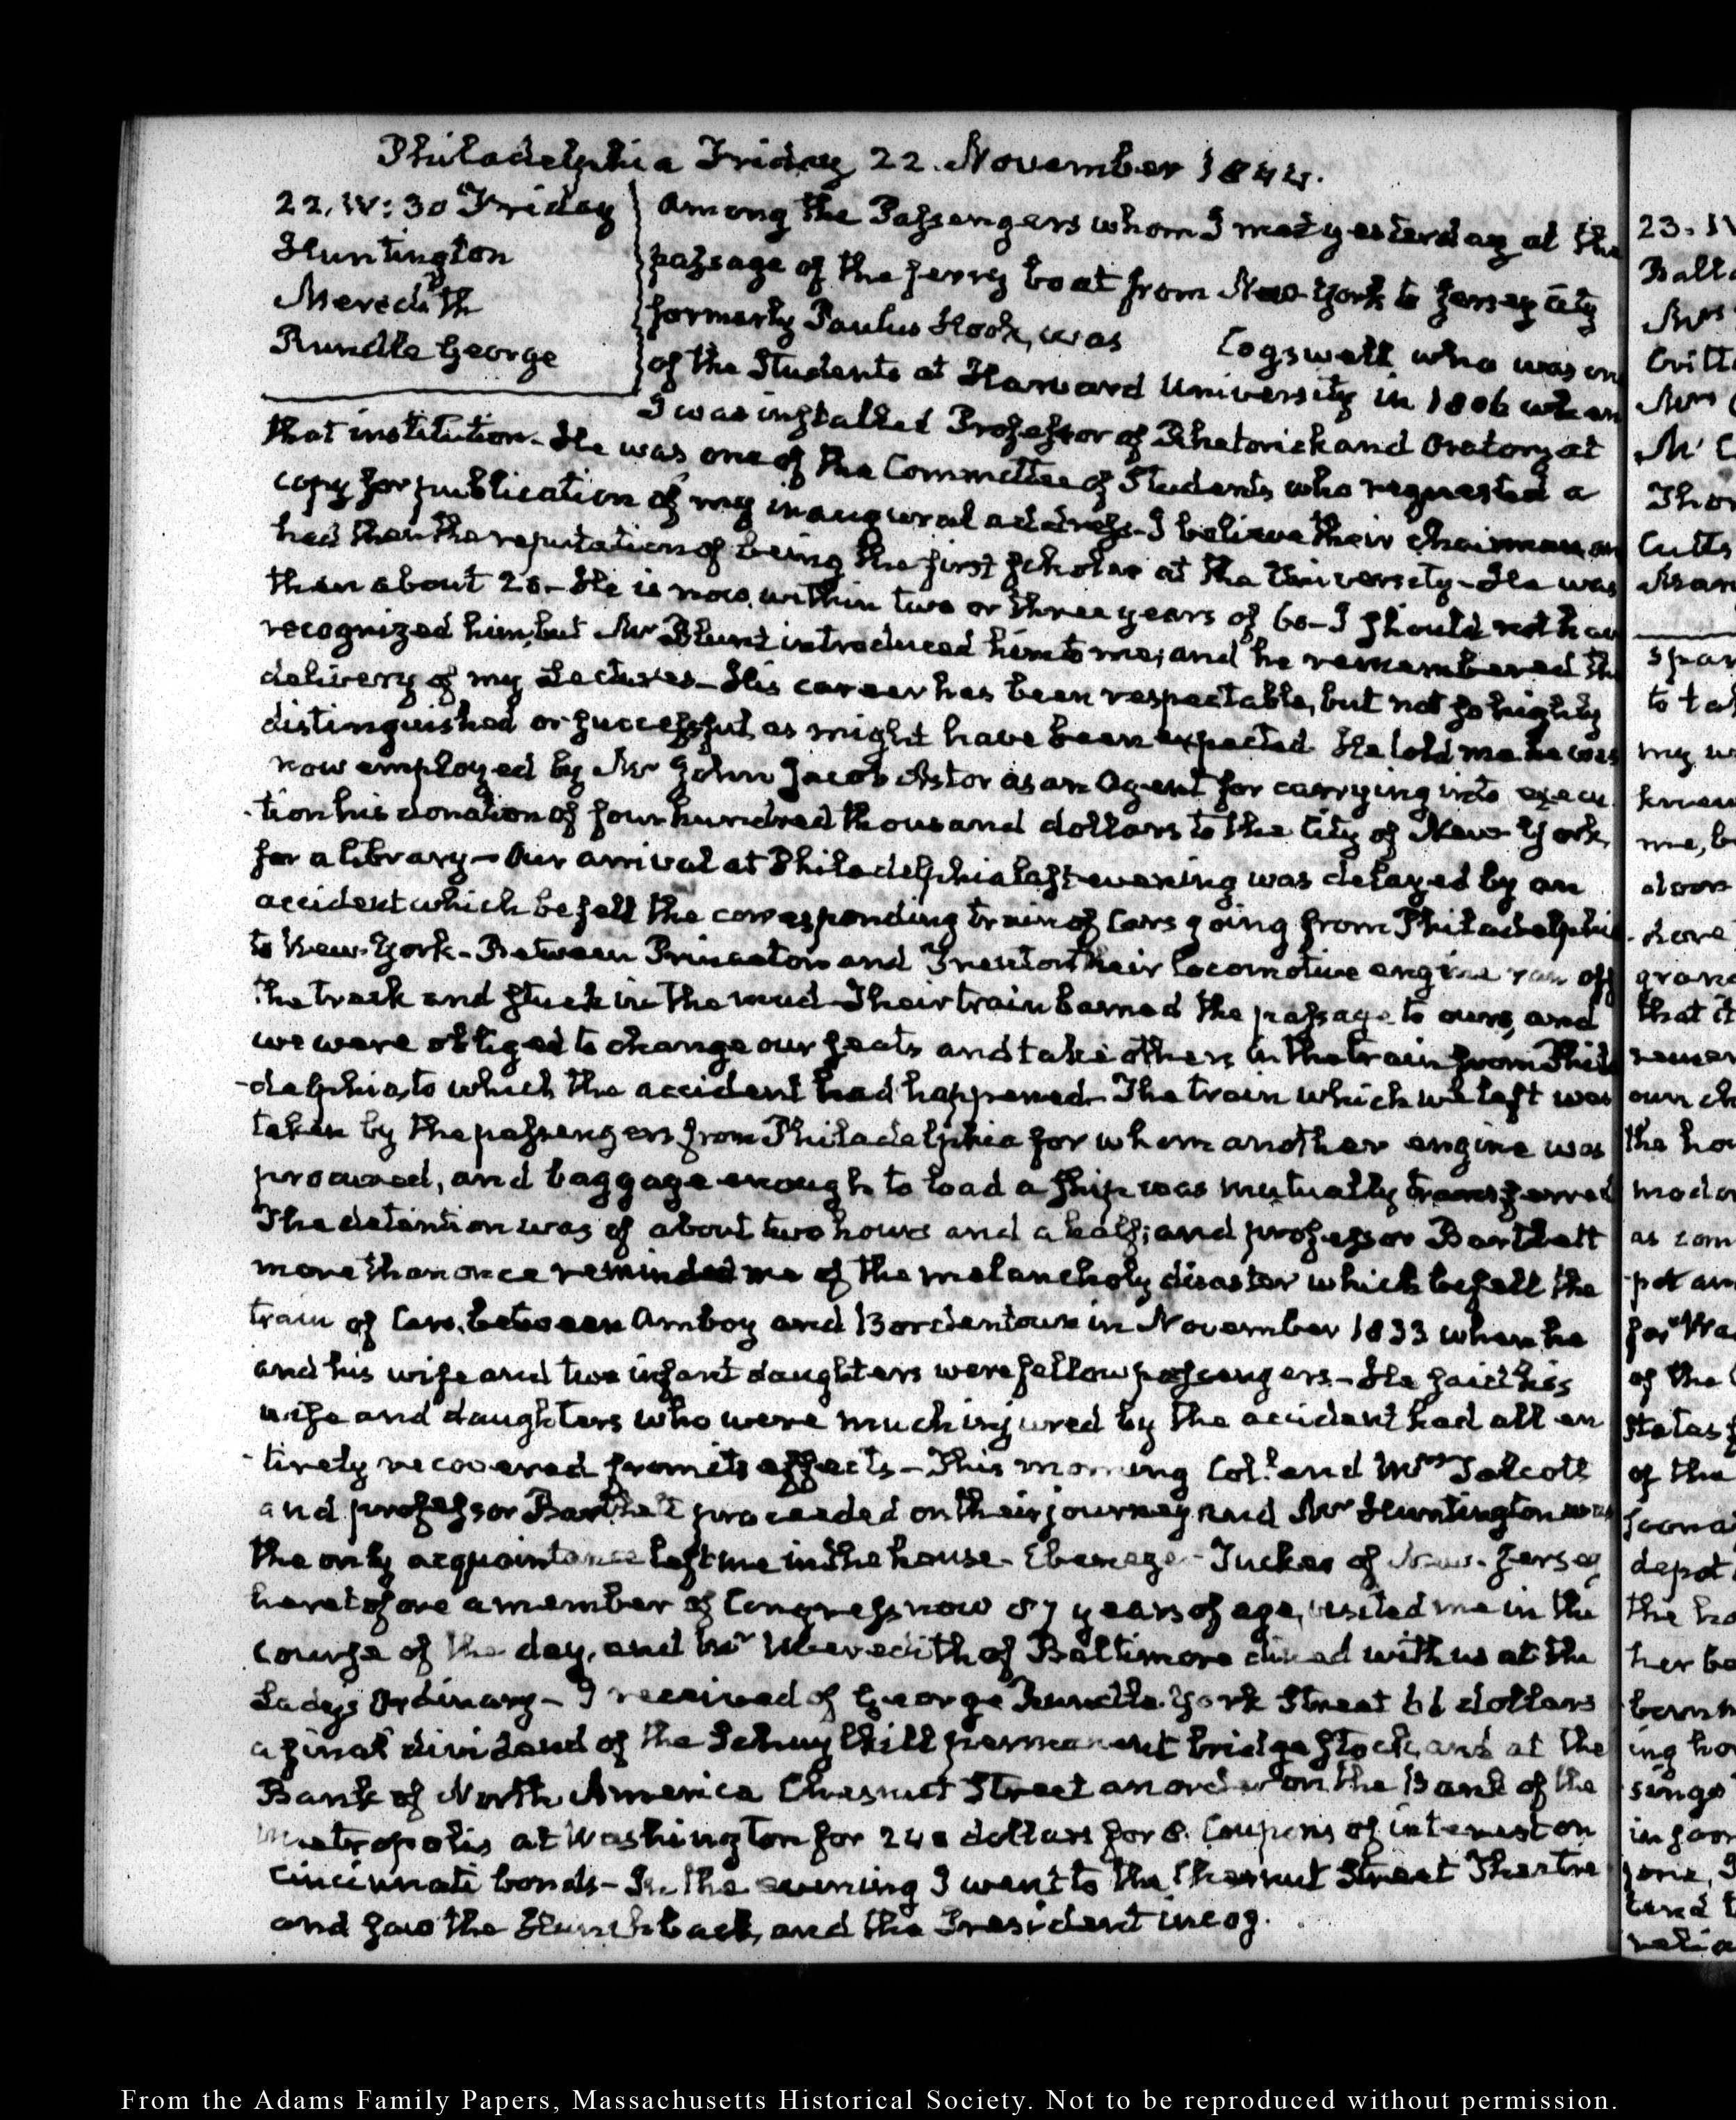 Philadelphia Friday 22. November 1844.
22. IV:30 Friday
Huntington
Meredith
Rundle George
Among the Passengers whom I met yesterday at the
passage of the ferry boat from New-York to Jersey city
formerly Paulus Hook, was Cogswell who was one
of the Students at Harvard University in 1806 when
I was installed Professor of Rhetorick and Oratory at
that institution. He was one of the Committee of Students who requested a
copy for publication of my inaugural address. I believe their chairman and
had then the reputation of being the first scholar at the University. He was
then about 20. He is now within two or three years of 60. I should not have
recognized him, but Mr Blunt introduced him to me; and he remembered the
delivery of my Lectures. His career has been respectable, but not so highly
distinguished or successful, as might have been expected. He told me he was
now employed by Mr John Jacob Astor as an Agent for carrying into execu
-tion his donation of four hundred thousand dollars to the City of New-York,
for a library. Our arrival at Philadelphia last evening was delayed by an
accident which befell the corresponding train of Cars going from Philadelphia
to New-York. Between Princeton and Trenton their locomotive engine ran off
the track and stuck in the mud. Their train barred the passage to ours, and
we were obliged to change our seats and take others in the train from Phila
-delphia, to which the accident had happened. The train which we left was
taken by the passengers from Philadelphia for whom another engine was
procured, and baggage enough to load a ship was mutually transferred
The detention was of about two hours and a half; and professor Bartlett
more than once reminded me of the melancholy disaster which befell the
train of Cars, between Amboy and Bordentown in November 1833 when he
and his wife and two infant daughters were fellow passengers. He said his
wife and daughters who were much injured by the accident had all en
-tirely recovered from its effects. This morning Col. and Mrs Talcott
and professor Bartlett proceeded on their journey and Mr Huntington was
the only acquaintance left me in the house. Ebenezer Tucker of New-Jersey
heretofore a member of Congress now 87 years of age, visited me in the
course of the day, and Mr Meredith of Baltimore dined with us at the
Ladys Ordinary. I received of George Rundle York Street 61 dollars
a final dividend of the Schuylkill permanent bridge Stock, and at the
Bank of North America Chesnut Street an order on the Bank of the
Metropolis at Washington for 240 dollars for 8. Coupons of interest on
Cincinnati bonds. In the evening I went to the Chesnut Street Theatre
and saw the Hunchback, and the President incog.
From the Adams Family Papers, Massachusetts Historical Society. Not to be reproduced without permission.